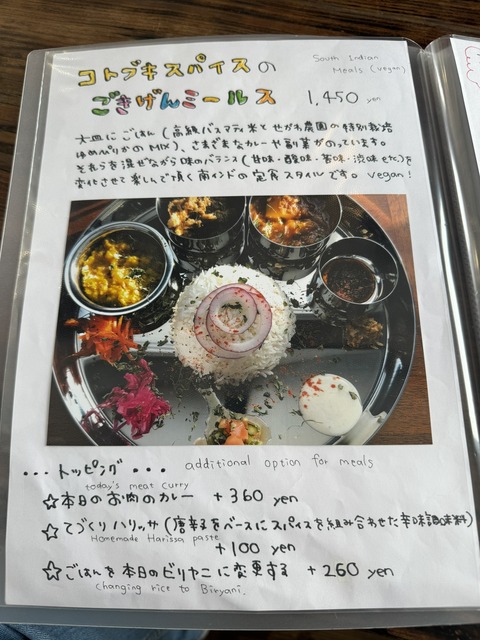 コトブキスパイスの
South Indian
Meals (vegan)
ごきげんミールス 1,450 yen
大皿にごはん(高級バスマティ米とせがわ農園の特別栽培
ゆめぴりかのMIX)、さまざまなカレーや副菜がのっています。
それらを混ぜながら味のバランス(甘味・酸味・苦味・渋味 etc.)を
変化させて楽しんで頂く南インドの定食スタイルです。vegan!
...トッピング... additional option for meals
today's meat curry
☆本日のお肉のカレー +360 yen
☆てづくりハリッサ(唐辛子をベースにスパイスを組み合わせた辛味調味料)
Homemade Harissa paste
+100 yen
☆ごはんを本日のビリヤニに変更する +260 yen
changing rice to Biryani.